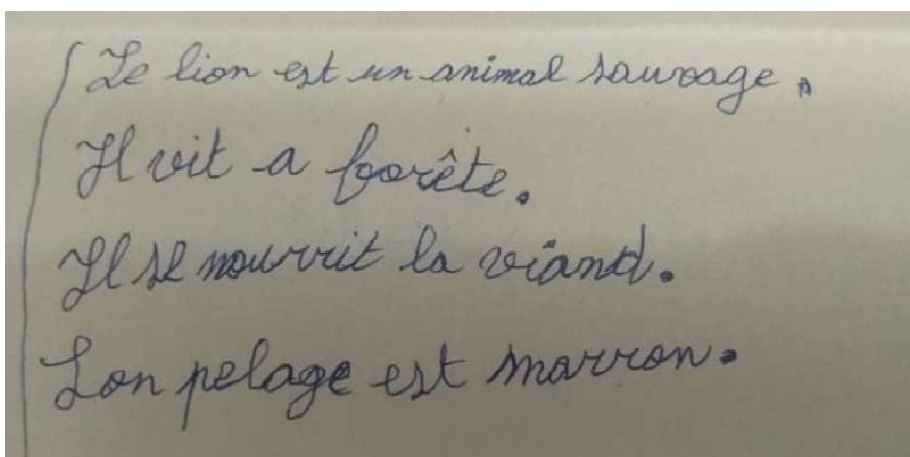 Le lion est un animal sauvage.
Il vit a forête.
Il se nourrit la viand.
Son pelage est marron.